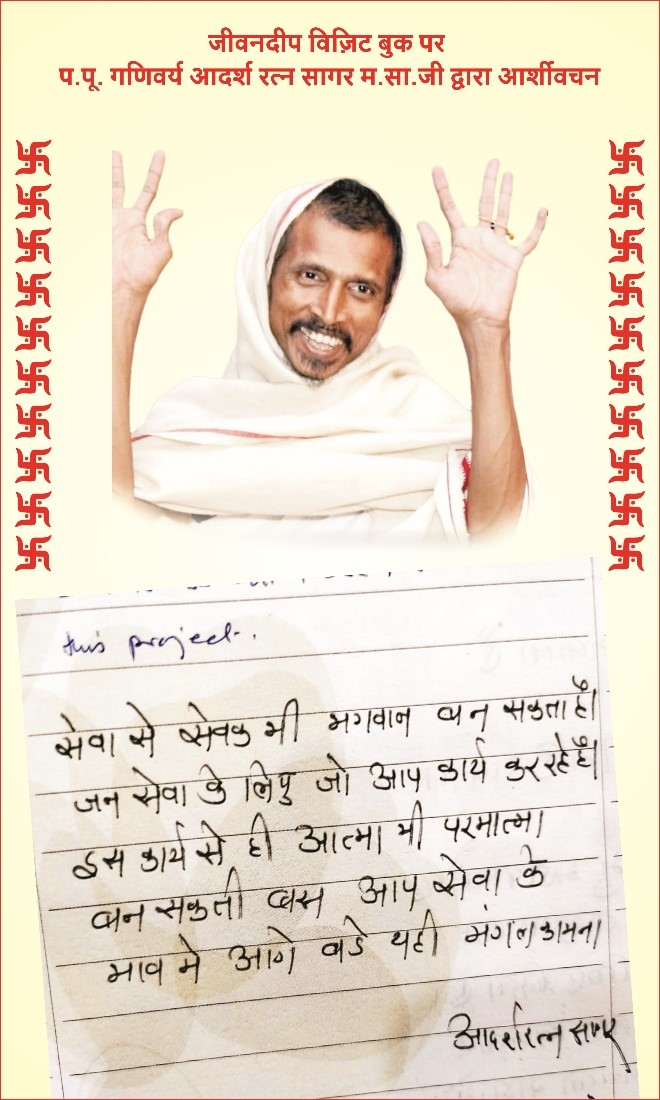 जीवनदीप विज़िट बुक पर
प.पू. गणिवर्य आदर्श रत्न सागर म.सा.जी द्वारा आर्शीवचन
this project.
सेवा से सेवक भी भगवान बन सकता है।
जन सेवा के लिए जो आप कार्य कर रहे है।
इस कार्य से ही आत्मा भी परमात्मा
बन सकती बस आप सेवा के
भाव मे आगे बडे यही मंगल कामना
आदर्शरत्न सागर